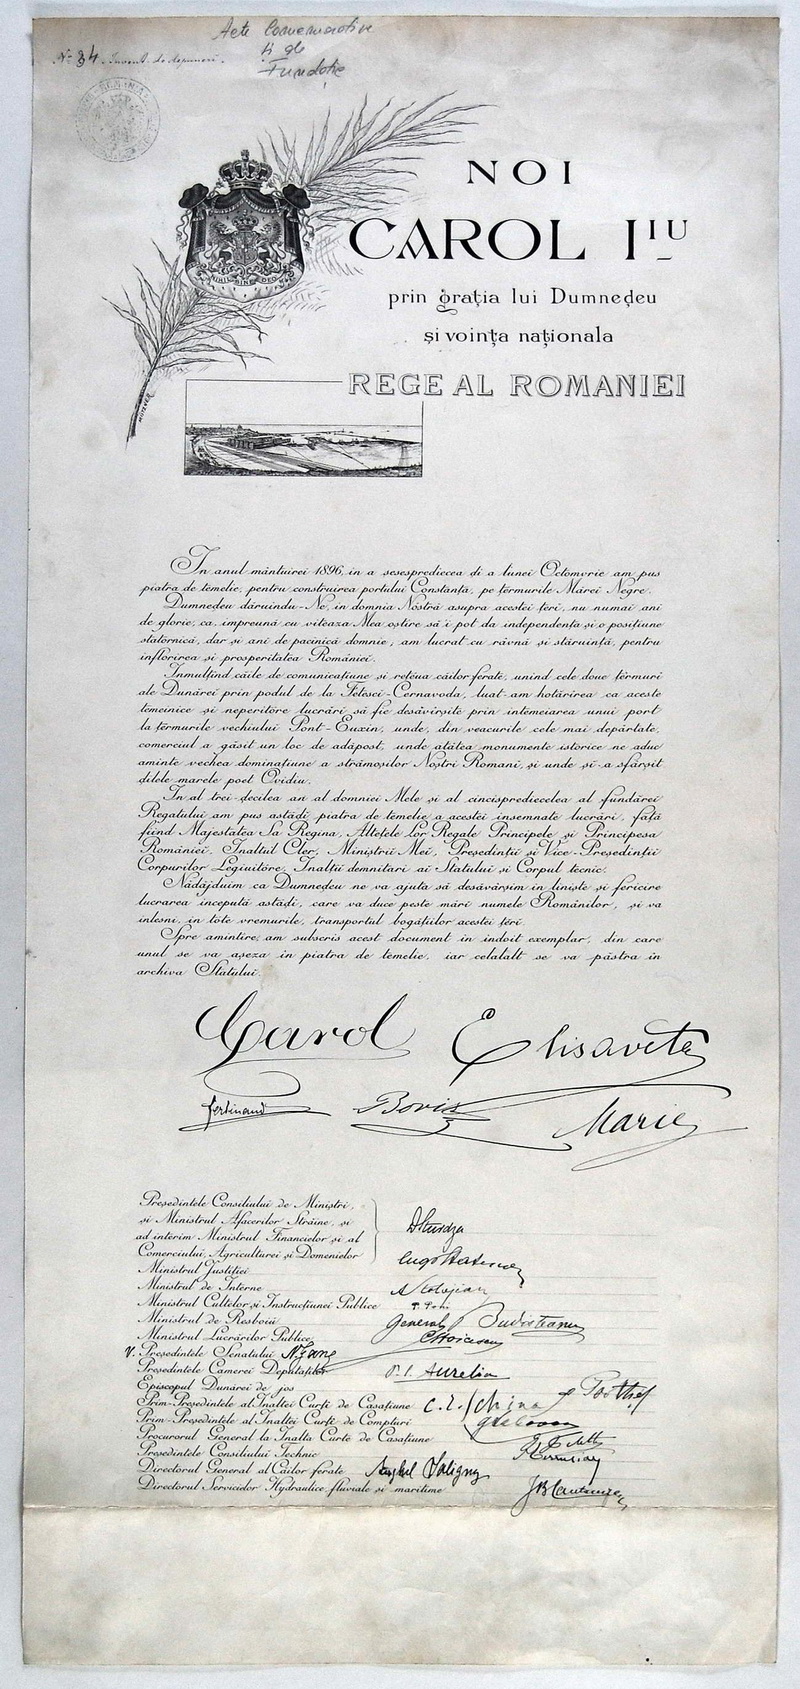 Acte Comemorative
și de
Fundație
No 34. Invent. de depuneri.
NOI
CAROL I IU
prin grația lui Dumnedeu
și voința naționala
REGE AL ROMANIEI
NIHIL SINE DEO
In anul mântuirei 1896, in a sesespredicea di a lunei Octomvrie am pus
piatra de temelie, pentru construirea portului Constanța, pe termurile Mărei Negre.
Dumnedeu dăruindu-Ne, in domnia Nostră asupra acestei țeri, nu numai ani
de glorie, ca impreună cu viteaza Mea oștire să'i pot da independența și o positiune
statornică, dar și ani de pacinică domnie, am lucrat cu râvnă și stăruință, pentru
inflorirea și prosperitatea României.
Inmulțind căile de comunicațiune și rețeua căilor ferate, unind cele doue țermuri
ale Dunărei prin podul de la Fetesci-Cernavoda, luat-am hotărirea ca aceste
temeinice și neperitóre lucrări să fie desăvirșite prin intemeiarea unui port
la țermurile vechiului Pont-Euxin, unde, din veacurile cele mai depărtate,
comerciul a găsit un loc de adăpost, unde atâtea monumente istorice ne aduc
aminte vechea dominațiune a strămoșilor Noștri Romani, și unde și-a sfârșit
dilele marele poet Ovidiu.
In al trei-decilea an al domniei Mele și al cincispredicelea al fundărei
Regatului am pus astădi piatra de temelie a acestei insemnate lucrări, față
fiind Majestatea Sa Regina, Altețele Lor Regale Principele și Principesa
României, Inaltul Cler, Miniștrii Mei, Președinții și Vice-Președinții
Corpurilor Legiuitóre, Inalții demnitari ai Statului și Corpul tecnic.
Nădăjduim ca Dumnedeu ne va ajuta să desăvârșim in liniște și fericire
lucrarea incepută astădi, care va duce peste mări numele Românilor, și va
inlesni, in tóte vremurile, transportul bogățiilor acestei țeri.
Spre amintire, am subscris acest document in indoit exemplar, din care
unul se va așeza in piatra de temelie, iar celalalt se va păstra in
archiva Statului.
Carol Elisaveta
Ferdinand Boris Marie
Președintele Consiliului de Miniștri,
și Ministrul Afacerilor Străine, și
ad interim Ministrul Financielor și al
Comerciului, Agriculturei și Domenielor
DSturdza
Ministrul Justiției
Ministrul de Interne
Ministrul Cultelor și Instrucțiunei Publice
Ministrul de Resboiu General Budisteanu
Ministrul Lucrărilor Publice CStoicescu
V. Președintele Senatului
Președintele Camerei Deputaților P. S. Aurelian
Episcopul Dunărei de jos
Prim-Președintele al Inaltei Curți de Casațiune C. E. Schina
Prim-Președintele al Inaltei Curți de Compturi
Procurorul General la Inalta Curte de Casațiune
Președintele Consiliului Technic
Directorul General al Căilor ferate Anghel Saligny
Directorul Serviciilor Hydraulice fluviale și maritime JBCantacuzen